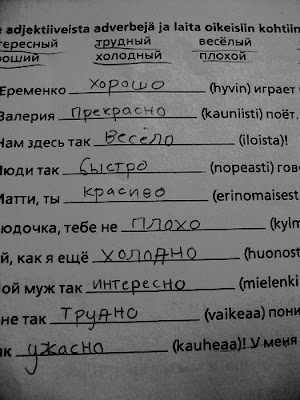 e adjektiiveista adverbejä ja laita oikeisiin kohtiin
тересный трудный весёлый
роший холодный плохой
Еременко хорошо (hyvin) играет
Валерия прекрасно (kauniisti) поёт.
Нам здесь так весёло (iloista)!
Люди так быстро (nopeasti) гово
Матти, ты красиво (erinomaisest
юдочка, тебе не плохо (kylm
й, как я ещё холодно (huonost
Мой муж так интересно (mielenki
не так трудно (vaikeaa) пони
ик ужасно (kauheaa)! У меня